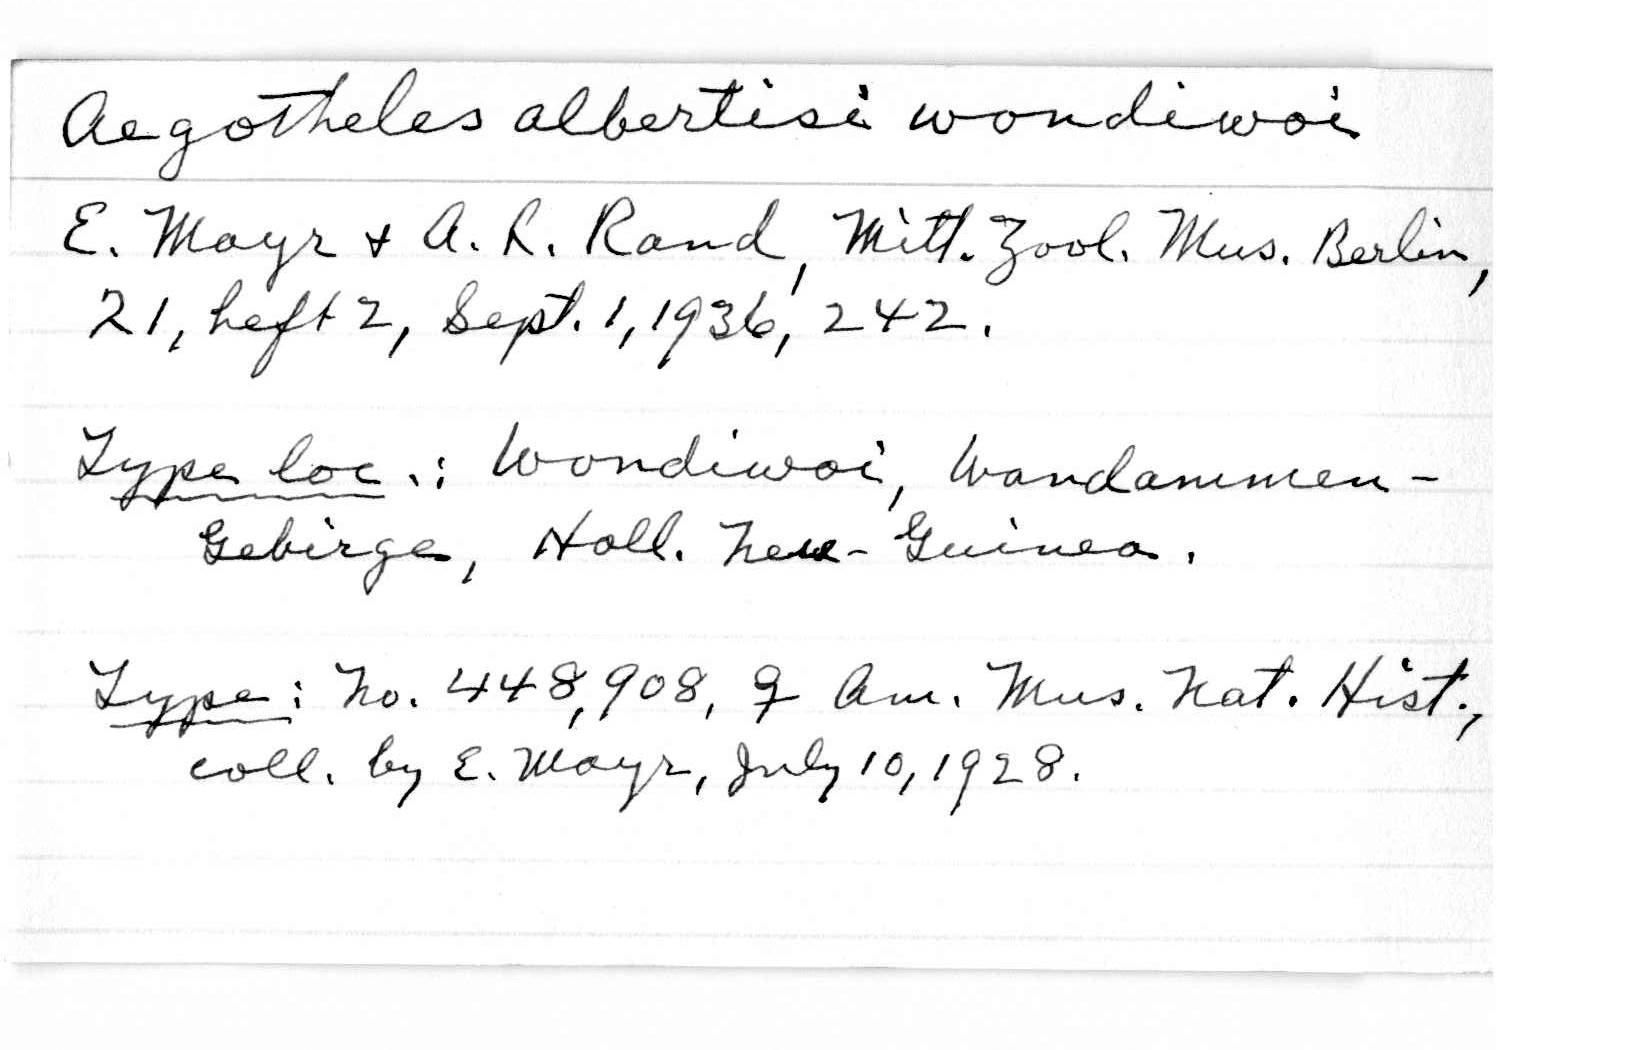 Aegotheles albertisi wondiwoi
E. Mayr + A. L. Rand, Mitt. Zool. Mus. Berlin,
21, heft 2, Sept. 1, 1936, 242.
Type loc.: Wondiwoi, Wandammen-
Gebirge, Holl. New-Guinea.
Type: No. 448,908, ♀ Am. Mus. Nat. Hist.,
coll. by E. Mayr, July 10, 1928.